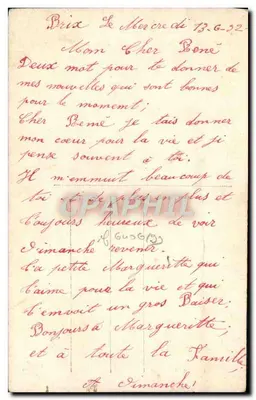 Brix Le Mercredi 13-6-22
Mom Cher Bené
Deux mot pour te donner de
mes nouvelles qui sont bonnes
pour le moment;
Cher Bené je tais donner
mon cœur pour la vie et ji
pense souvent à toi.
Il m'emmuit beaucoup de
toi plus et
toujours heureux de voir
dimanche revenir.
Ta petite Margueritte qui
t'aime pour la vie et qui
t'envoit un gros Baiser;
Bonjours à Margueritte;
et à toute la Famille
A dimanche!
CPAPHIL